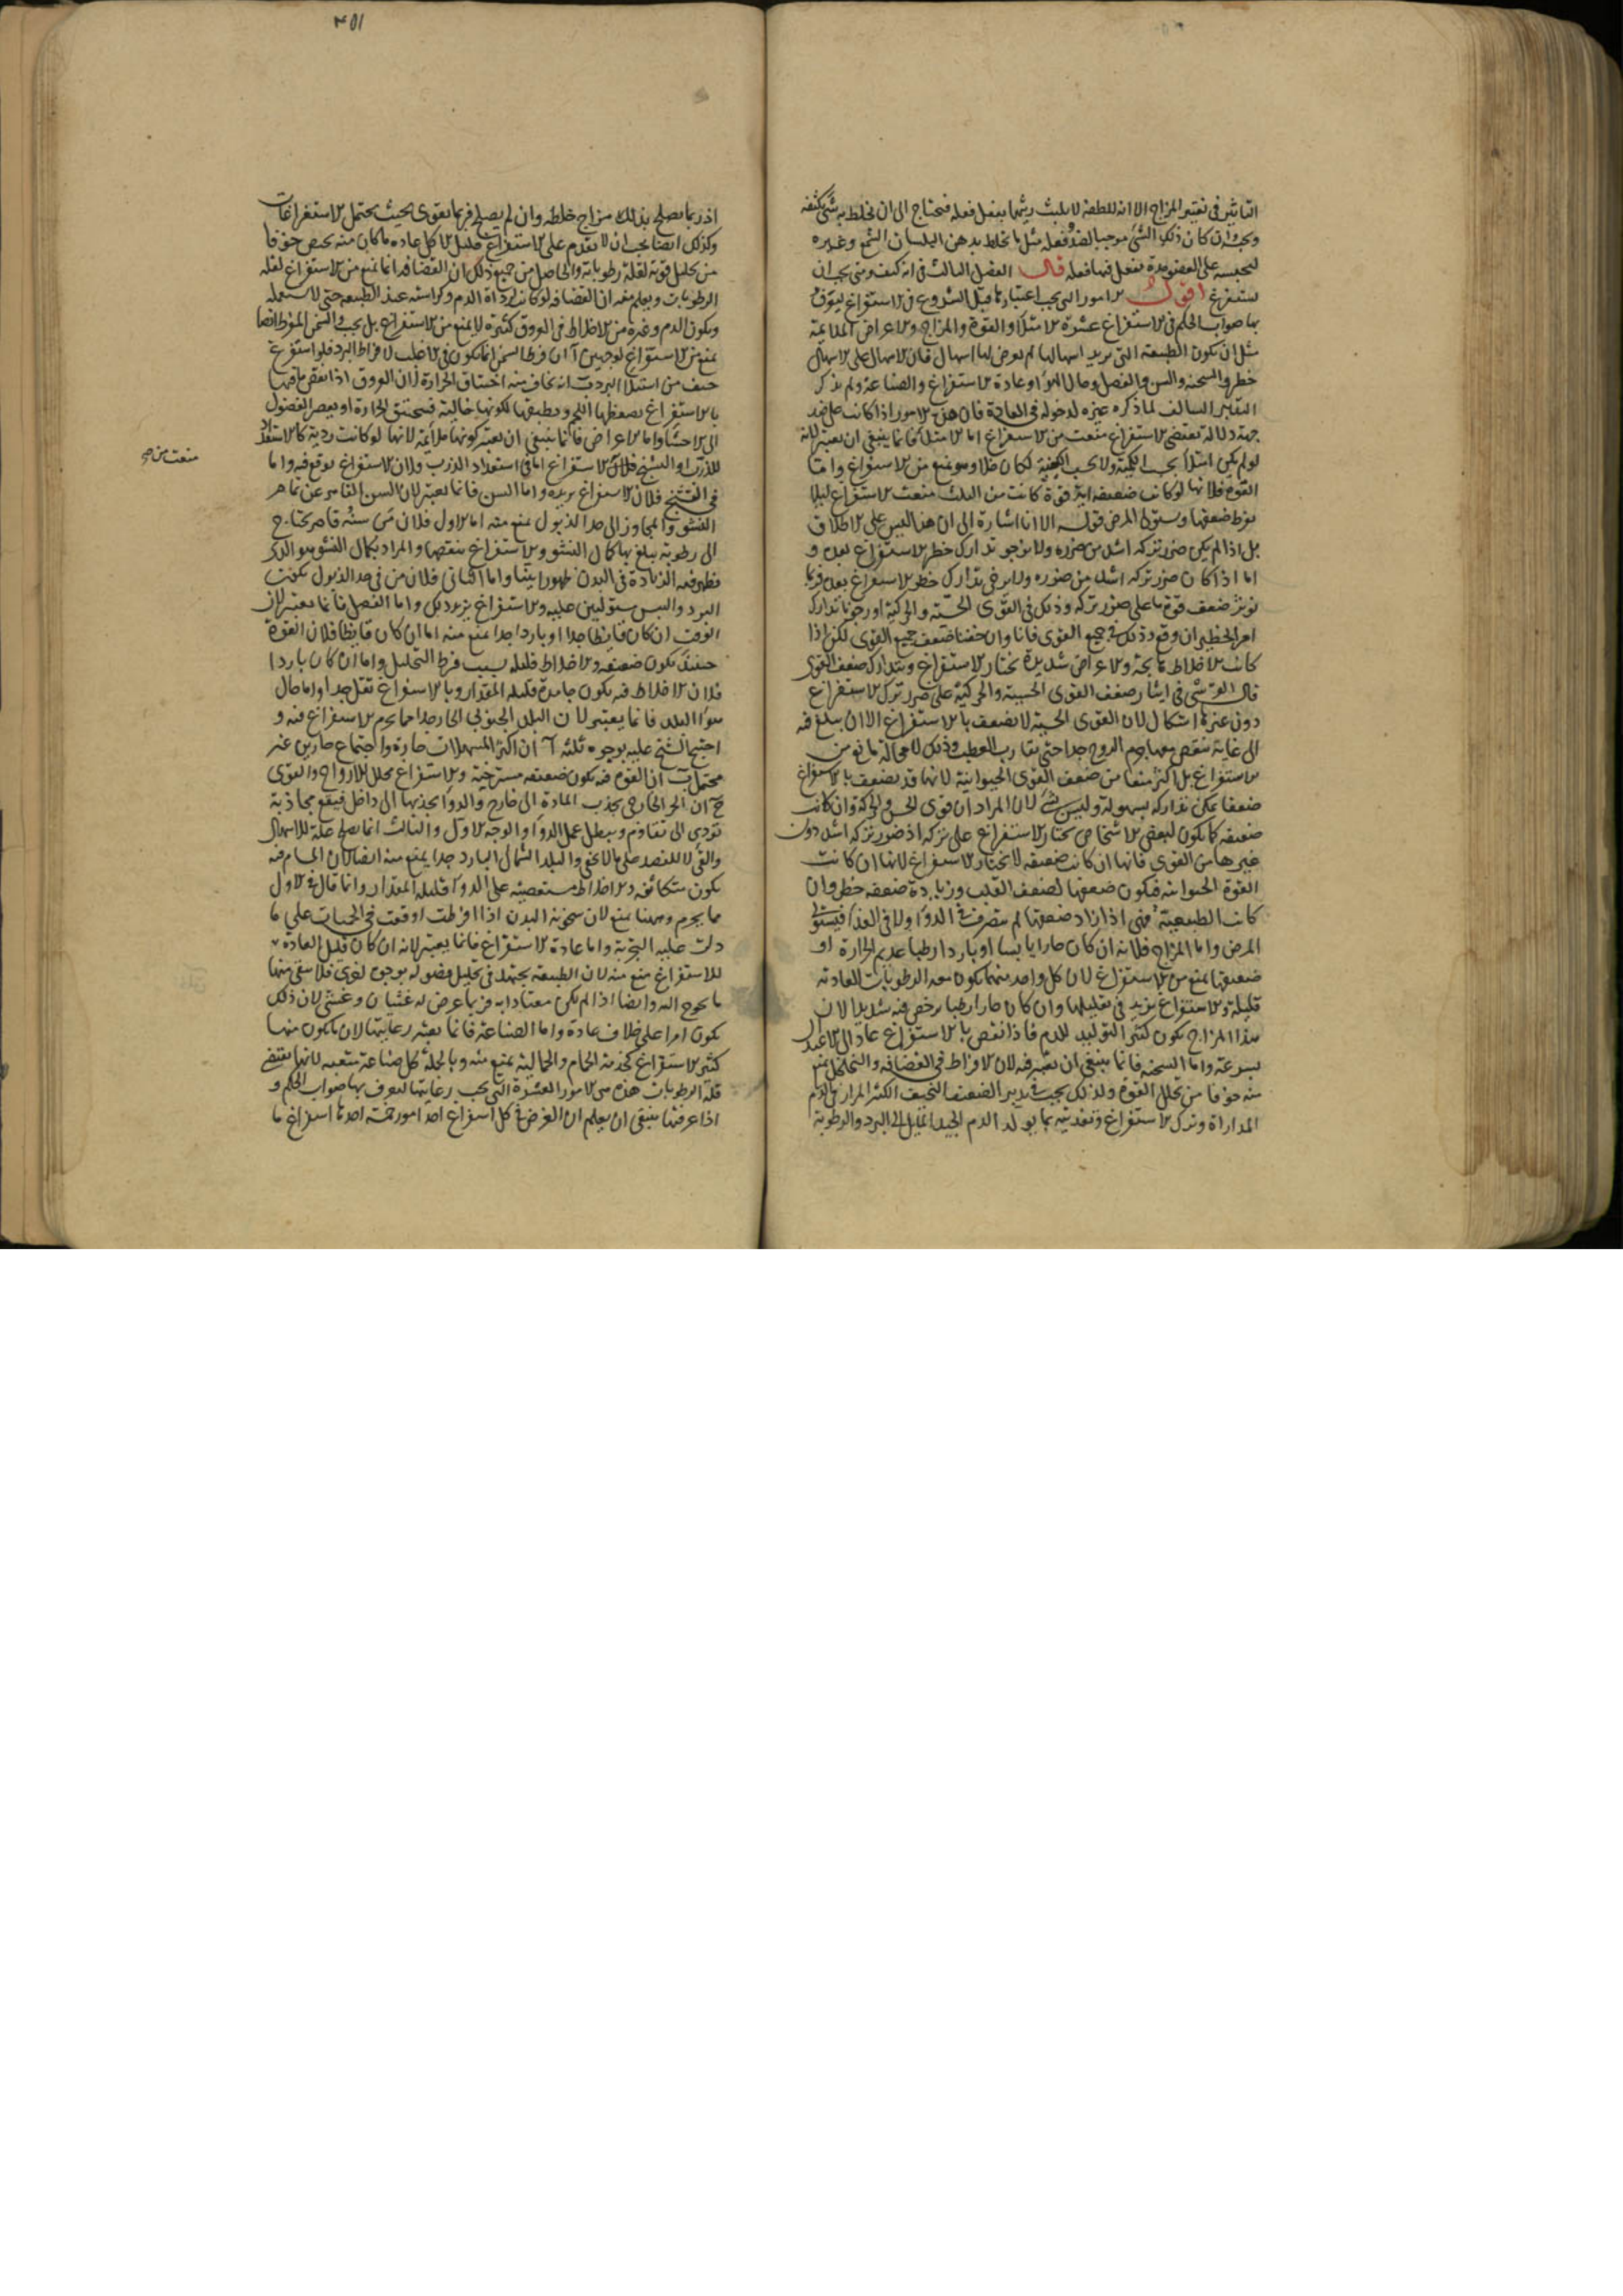 التاثير فى تغيير المزاج الا انه للطفه لا يلبث ريثما يفعل فعله فيحتاج الى ان يخلط به شئ يكثفه
وكان ذلك الشئ موجبا لضد فعله مثل ما يخلط بدهن البلسان الشمع وغيره
ليحبسه على العضو مدة يفعل فيها فعله قال الفصل الثالث فى انه كيف ومتى يجب ان
يستفرغ اقول الامور التى يجب اعتبارها قبل الشروع فى الاستفراغ ليعرف
بها صواب الحكم فى الاستفراغ عشرة الامتلاء والقوة والمزاج والاعراض الملائمة
مثل ان يكون الطبيعة التى يريد اسهالها لم يعرض لها اسهال فان الاسهال على الاسهال
خطر والسحنة والسن والفصل وحال الهواء وعادة الاستفراغ والصناعة ولم يذكر
التدبير السالف لما ذكره غيره لدخوله فى العادة فان هذه الامور اذا كانت على ضد
جهة دلالة تقتضى الاستفراغ منعت من الاستفراغ اما الامتلاء فانما ينبغى ان يعتبر لانه
لو لم يكن امتلاء بحسب الكمية ولا بحسب الكيفية لكان خلاء وهو يمنع من الاستفراغ واما
القوة فلانها لو كانت ضعيفة اية قوة كانت من الثلث منعت الاستفراغ لئلا
يفرط ضعفها ويستولى المرض قوله الا انا اشارة الى ان هذا ليس على الاطلاق
بل اذا لم يكن ضرر تركه اشد من ضرره ولا يرجو تدارك خطر الاستفراغ بعده و
اما اذا كان ضرر تركه اشد من ضرره ويرجى تدارك خطر الاستفراغ بعده فربما
نوثر ضعف قوة ما على ضرر تركه وذلك فى القوى الحسية والحركية اذ رجونا تدارك
امر الخطير ان وقع وذلك فى جميع القوى فانا وان خفنا ضعف جميع القوى لكن اذا
كانت الاخلاط هائجة والاعراض شديدة نختار الاستفراغ ونتدارك ضعف القوى
قال القرشى فى ايثار ضعف القوى الحسية والحركية على ضرر ترك الاستفراغ
دون غيرها اشكال لان القوى الحسية لا تضعف بالاستفراغ الا ان يبلغ فيه
الى غاية ينقص معها جرم الروح جدا حتى يقارب العطب وذلك لا محالة مانع من
الاستفراغ بل اكثر منعا من ضعف القوى الحيوانية لانها قد تضعف بالاستفراغ
ضعفا يمكن تداركه بسهولة وليس بشئ لان المراد ان قوى الحس والحركة وان كانت
ضعيفة كما يكون لبعض الاشخاص نختار الاستفراغ على تركه اذ ضرر تركه اشد دون
غيرها من القوى فانها ان كانت ضعيفة لا نختار الاستفراغ لانها ان كانت
القوة الحيوانية فيكون ضعفها لضعف القلب وزيادة ضعفه خطر وان
كانت الطبيعية فهى اذا زاد ضعفها لم يتصرف فى الدواء ولا فى الغذاء فيستولى
المرض واما المزاج فلانه ان كان حارا يابسا او باردا رطبا عديم الحرارة او
ضعيفها يمنع من الاستفراغ لان كل واحد منهما يكون معه الرطوبات العادية
قليلة والاستفراغ يزيد فى تقليلها وان كان حارا رطبا يرخص فيه شديدا لان
هذا المزاج يكون كثير التوليد للدم فاذا نقص بالاستفراغ عاد الى الاعتدال
بسرعة واما السحنة فانما ينبغى ان يعتبر فيه لان الافراط فى القضافة والتخلخل يمنع
منه خوفا من تحلل القوة ولذلك يجب فى تدبير الضعيف النحيف الكثير المرار فى الدم
المداراة وترك الاستفراغ وتغذيته بما يولد الدم الجيد المائل الى البرد والرطوبة
٤٥١
اذ ربما يصلح بذلك مزاج خلطه وان لم يصلح فربما يقوى بحيث يحتمل الاستفراغات
وكذلك ايضا يجب ان لا يقدم على الاستفراغ قليل الاكل عادة ما كان منه بحيص خوفا
من تحليل قوته لقلة رطوباته والحاصل من جميع ذلك ان القضافة انما تمنع من الاستفراغ لقلة
الرطوبات ويعلم منه ان القضافة لو كانت لرداة الدم وكراهته عند الطبيعة حتى لا تستعمله
ويكون الدم وغيره من الاخلاط فى العروق كثيرة لا يمنع من الاستفراغ بل يجب والسمن المفرط ايضا
يمنع من الاستفراغ لوجهين آ ان فرط السمن انما يكون فى الاغلب لافراط البرد فلو استفرغ
خيف من استيلاء البرد ب انه يخاف منه اختناق الحرارة لان العروق اذا نقص ما فيها
بالاستفراغ يضغطها اللحم ويطبقها لكونها خالية فيختنق الحرارة او يعصر الفضول
الى الاحشاء واما الاعراض فانما ينبغى ان يعتبر كونها ملائمة لانها لو كانت ردية كالاستعداد
للذرب او التشنج فلان الاستفراغ اما فى استعداد الذرب فلان الاستفراغ يوقع فيه واما
منعت من ه
فى التشنج فلان الاستفراغ يزيده واما السن فانما يعتبر لان السن القاصر عن تمام
النشو والمجاوز الى حد الذبول يمنع منه اما الاول فلان من سنه قاصر يحتاج
الى رطوبة يبلغ بها كمال النشو والاستفراغ ينقصها والمراد بكمال النشو هو الذى
يظهر فيه الزيادة فى البدن ظهورا بينا واما الثانى فلان من فى حد الذبول يكون
البرد واليبس مستوليين عليه والاستفراغ يزيد ذلك واما الفصل فانما يعتبر لان
الوقت ان كان قايظا جدا او باردا جدا يمنع منه اما ان كان قايظا فلان القوة
حينئذ يكون ضعيفة والاخلاط قليلة بسبب فرط التحليل واما ان كان باردا
فلان الاخلاط فيه يكون جامدة قليلة المقدار وبالاستفراغ تقل جدا واما حال
هواء البلد فانما يعتبر لان البلد الجنوبى الحار جدا مما يحرم الاستفراغ فيه و
احتج الشيخ عليه بوجوه ثلثة آ ان اكثر المسهلات حارة واجتماع حارين غير
محتمل ب ان القوة فيه يكون ضعيفة مسترخية والاستفراغ محلل للارواح والقوى
ج ان الحر الخارجى يجذب المادة الى خارج والدواء يجذبها الى داخل فيقع مجاذبة
تؤدى الى تقاوم ويبطل عمل الدواء والوجه الاول والثالث انما يصلح علة للاسهال
والقئ لا للفصد على ما لا يخفى والبلد الشمالى البارد جدا يمنع منه ايضا لان المسام فيه
يكون متكاثفة والاخلاط مستعصية على الدواء قليلة المقدار وانما قال فى الاول
مما يحرم وههنا يمنع لان سخونة البدن اذا افرطت اوقعت فى الحميات على ما
دلت عليه التجربة واما عادة الاستفراغ فانما يعتبر لانه ان كان قليل العادة
للاستفراغ منع منه لان الطبيعة يجتهد فى تحليل فضوله بوجوه اخرى فلا يبقى منها
ما يحوج اليه وايضا اذا لم يكن معتادا به فربما عرض له غشيان وغشى لان ذلك
يكون امرا على خلاف عادة واما الصناعة فانما يعتبر رعايتها لان ما يكون منها
كثير الاستفراغ كخدمة الحمام والحمالية يمنع منه وبالجملة كل صناعة متعبة لانها يقتضى
قلة الرطوبات هذه هى الامور العشرة التى يجب رعايتها ليعرف بها صواب الحكم و
اذا عرفتها ينبغى ان يعلم ان الغرض فى كل استفراغ احد امور خمسة احدها استفراغ ما